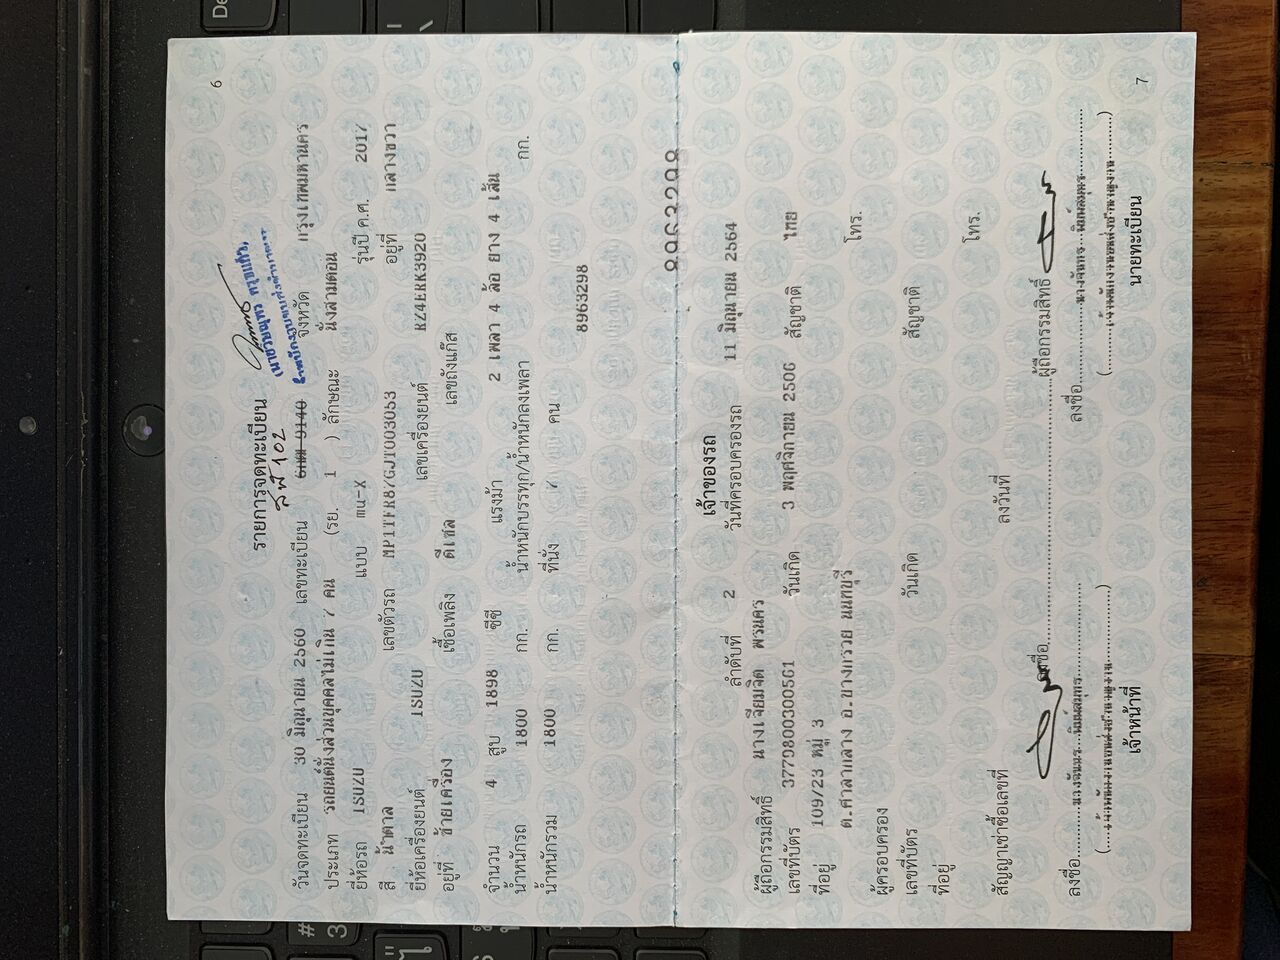 6
รายการจดทะเบียน
วันจดทะเบียน 30 มิถุนายน 2560 เลขทะเบียน 6กฒ 9140 จังหวัด กรุงเทพมหานคร
ประเภท รถยนต์นั่งส่วนบุคคลไม่เกิน 7 คน (รย. 1 ) ลักษณะ นั่งสามตอน
ยี่ห้อรถ ISUZU แบบ mu-X รุ่นปี ค.ศ. 2017
สี น้ำตาล เลขตัวรถ MP1TFR87GJT003053 อยู่ที่ กลางขวา
ยี่ห้อเครื่องยนต์ ISUZU เลขเครื่องยนต์ RZ4ERK3920
อยู่ที่ ซ้ายเครื่อง เชื้อเพลิง ดีเซล เลขถังแก๊ส
จำนวน 4 สูบ 1898 ซีซี แรงม้า 2 เพลา 4 ล้อ ยาง 4 เส้น
น้ำหนักรถ 1800 กก. น้ำหนักบรรทุก/น้ำหนักลงเพลา กก.
น้ำหนักรวม 1800 กก. ที่นั่ง 7 คน
8963298
8963298
เจ้าของรถ
ลำดับที่ 2 วันที่ครอบครองรถ 11 มิถุนายน 2564
ผู้ถือกรรมสิทธิ์ นางเจียมจิต พรนคร
เลขที่บัตร 3770800300561 วันเกิด 3 พฤศจิกายน 2506 สัญชาติ ไทย
ที่อยู่ 109/23 หมู่ 3
ต.ศาลากลาง อ.บางกรวย นนทบุรี โทร.
ผู้ครอบครอง
เลขที่บัตร วันเกิด สัญชาติ
ที่อยู่
โทร.
สัญญาเช่าซื้อเลขที่ ลงวันที่
ลงชื่อ ผู้ถือกรรมสิทธิ์
ลงชื่อ ลงชื่อ
เจ้าหน้าที่ นายทะเบียน
7